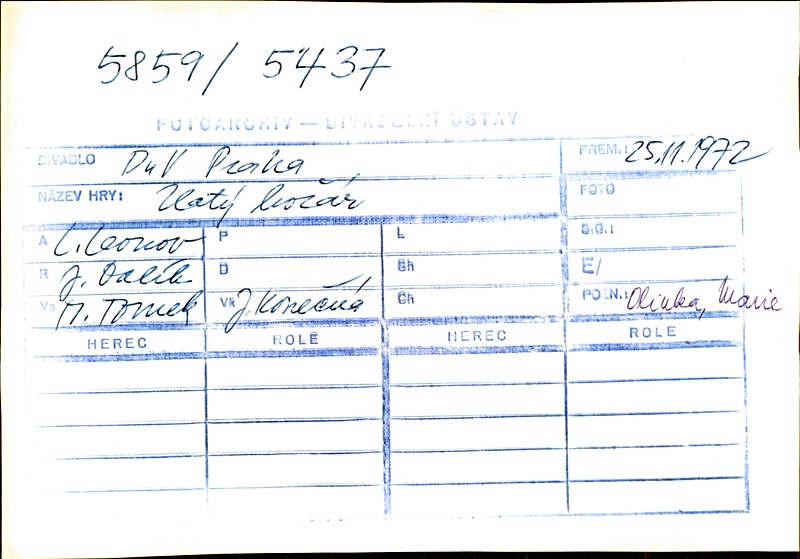 5859/ 5437
FOTOARCHIV — DIVADELNÍ ÚSTAV
DIVADLO DnV Praha PREM.: 25.11.1972
NÁZEV HRY: Zlatý kočár FOTO
A L. Leonov P L B.G.:
R J. Dalík D Sh E/
Vs M. Tomek Vk J. Konečná Ch POZN.: Olinka, Marie
HEREC ROLE HEREC ROLE